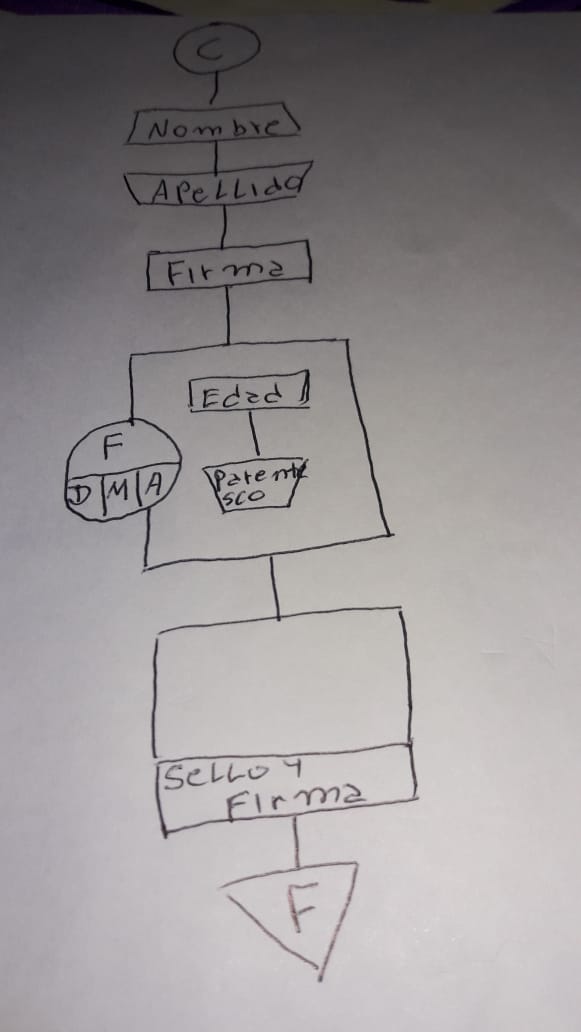 C
Nombre
Apellido
Firma
Edad
F
D M A
Parente
sco
Sello y
Firma
F